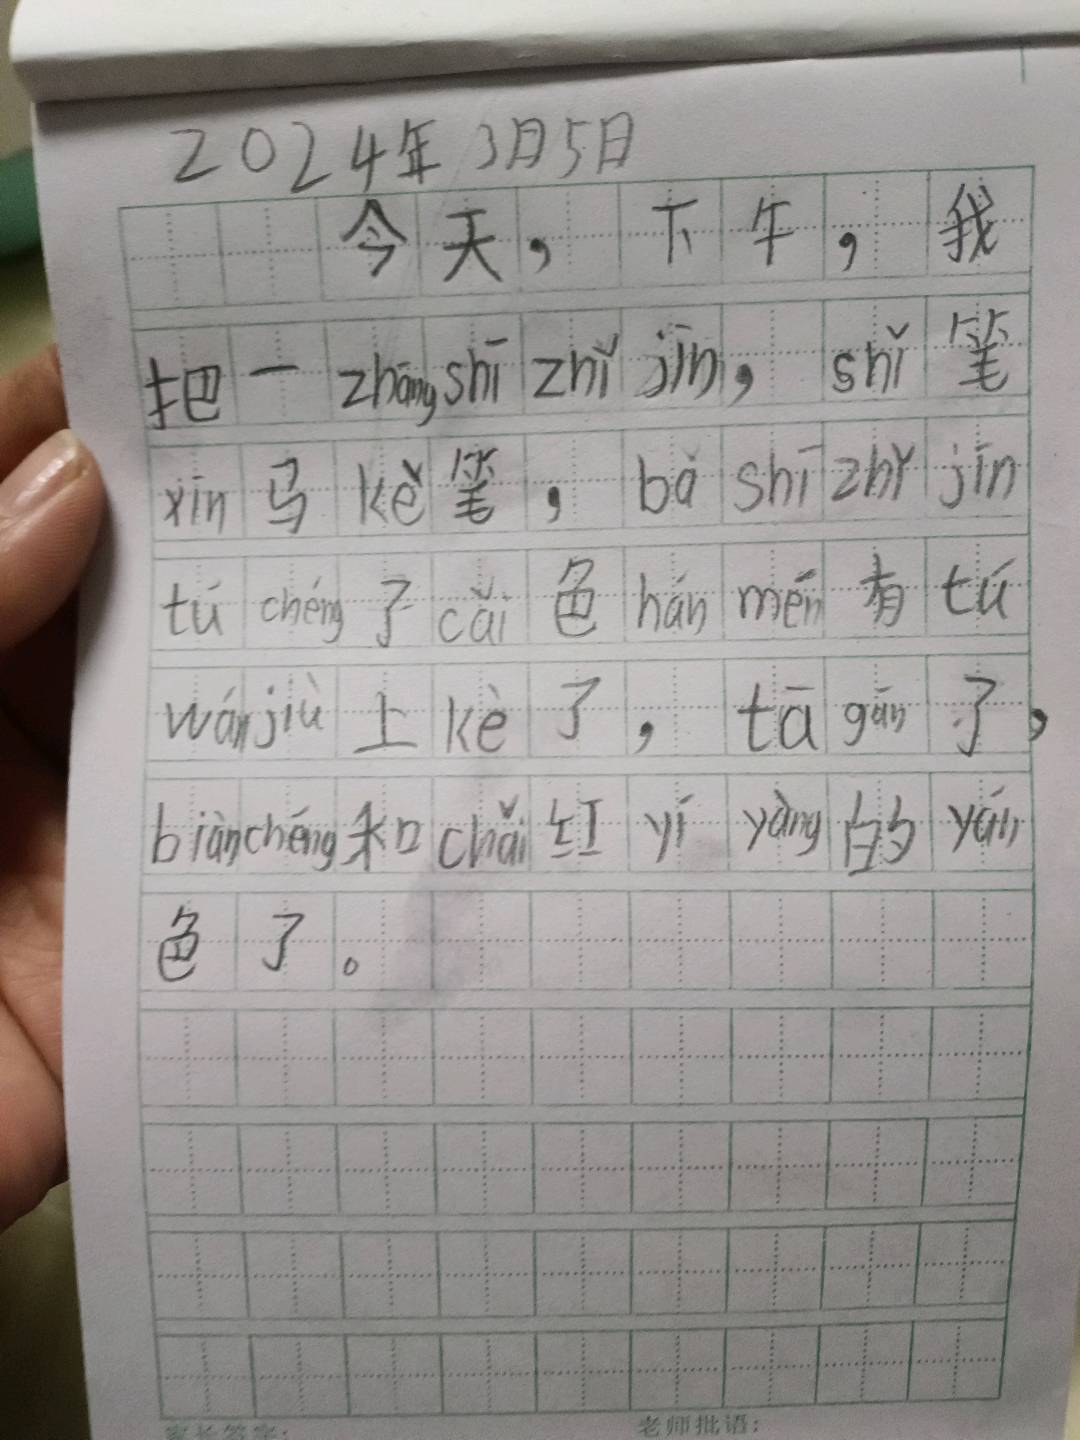 2024年3月5日
今天，下午，我
把一zhāng shī zhǐ jīn，shǐ笔
xīn马kè笔，bǎ shī zhǐ jīn
tú chéng了cǎi色hán mén有tú
wán jiù上kè了，tā gān了，
biàn chéng和chǎi红yí yàng的yán
色了。
家长签字：
老师批语：